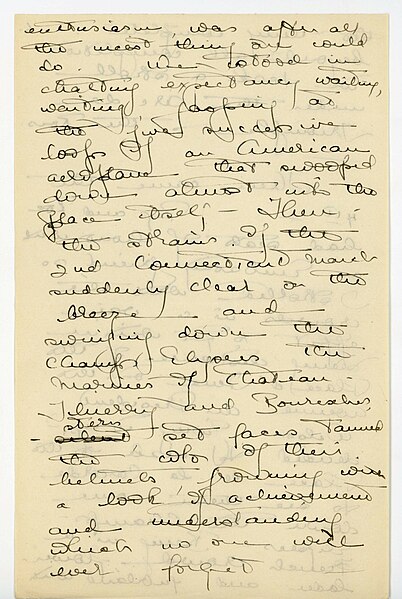 enthusiasm, was after all
the nicest thing one could
do. We stood in
chatting expectancy waiting,
waiting, gasping at
the five successive
loops of an American
aeroplane that swooped
down almost into the
place itself — Then
the strains of the
2nd Connecticut March
suddenly clear on the
breeze — and
swinging down the
Champs Elysees the
Marines of Chateau-
Thierry and Bouresches,
stern
set faces tanned
the color of their
helmets, frowning with
a look of achievement
and understanding
which no one will
ever forget